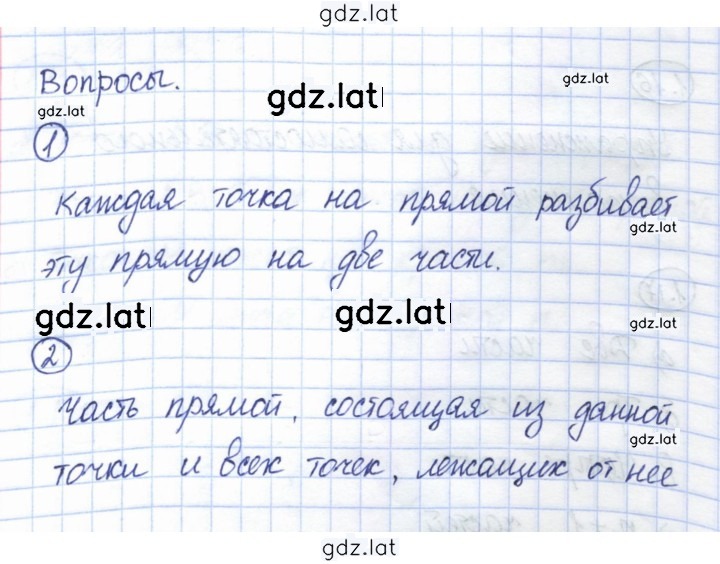 gdz.lat
Вопросы.
gdz.lat
gdz.lat
gdz.lat
1
Каждая точка на прямой разбивает
gdz.lat
эту прямую на две части.
gdz.lat
gdz.lat
gdz.lat
2
Часть прямой, состоящая из данной
gdz.lat
точки и всех точек, лежащих от нее
gdz.lat